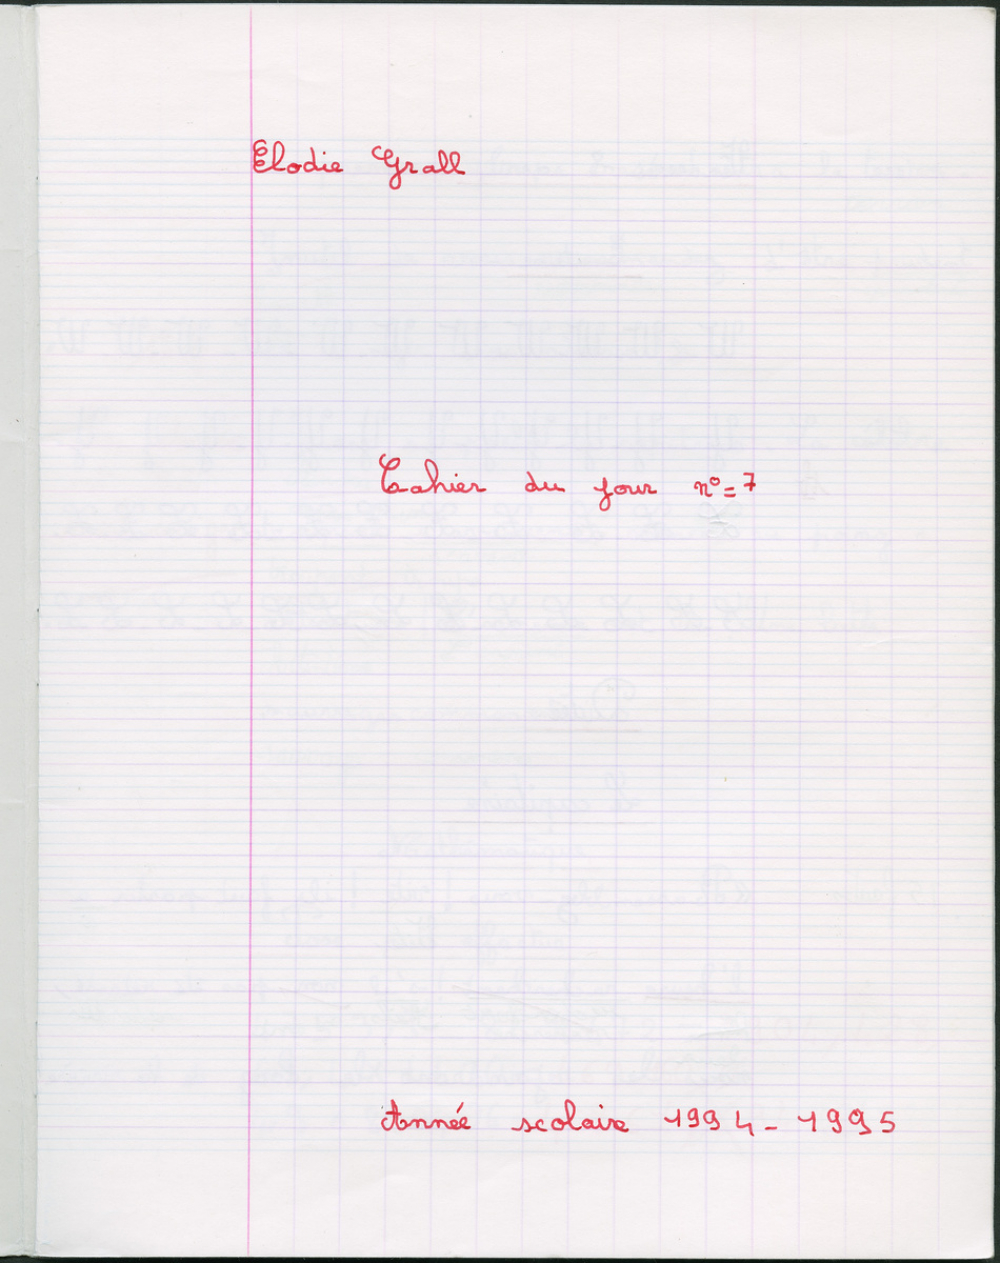 Elodie Grall
Cahier du jour n°=7
Année scolaire 1994-1995